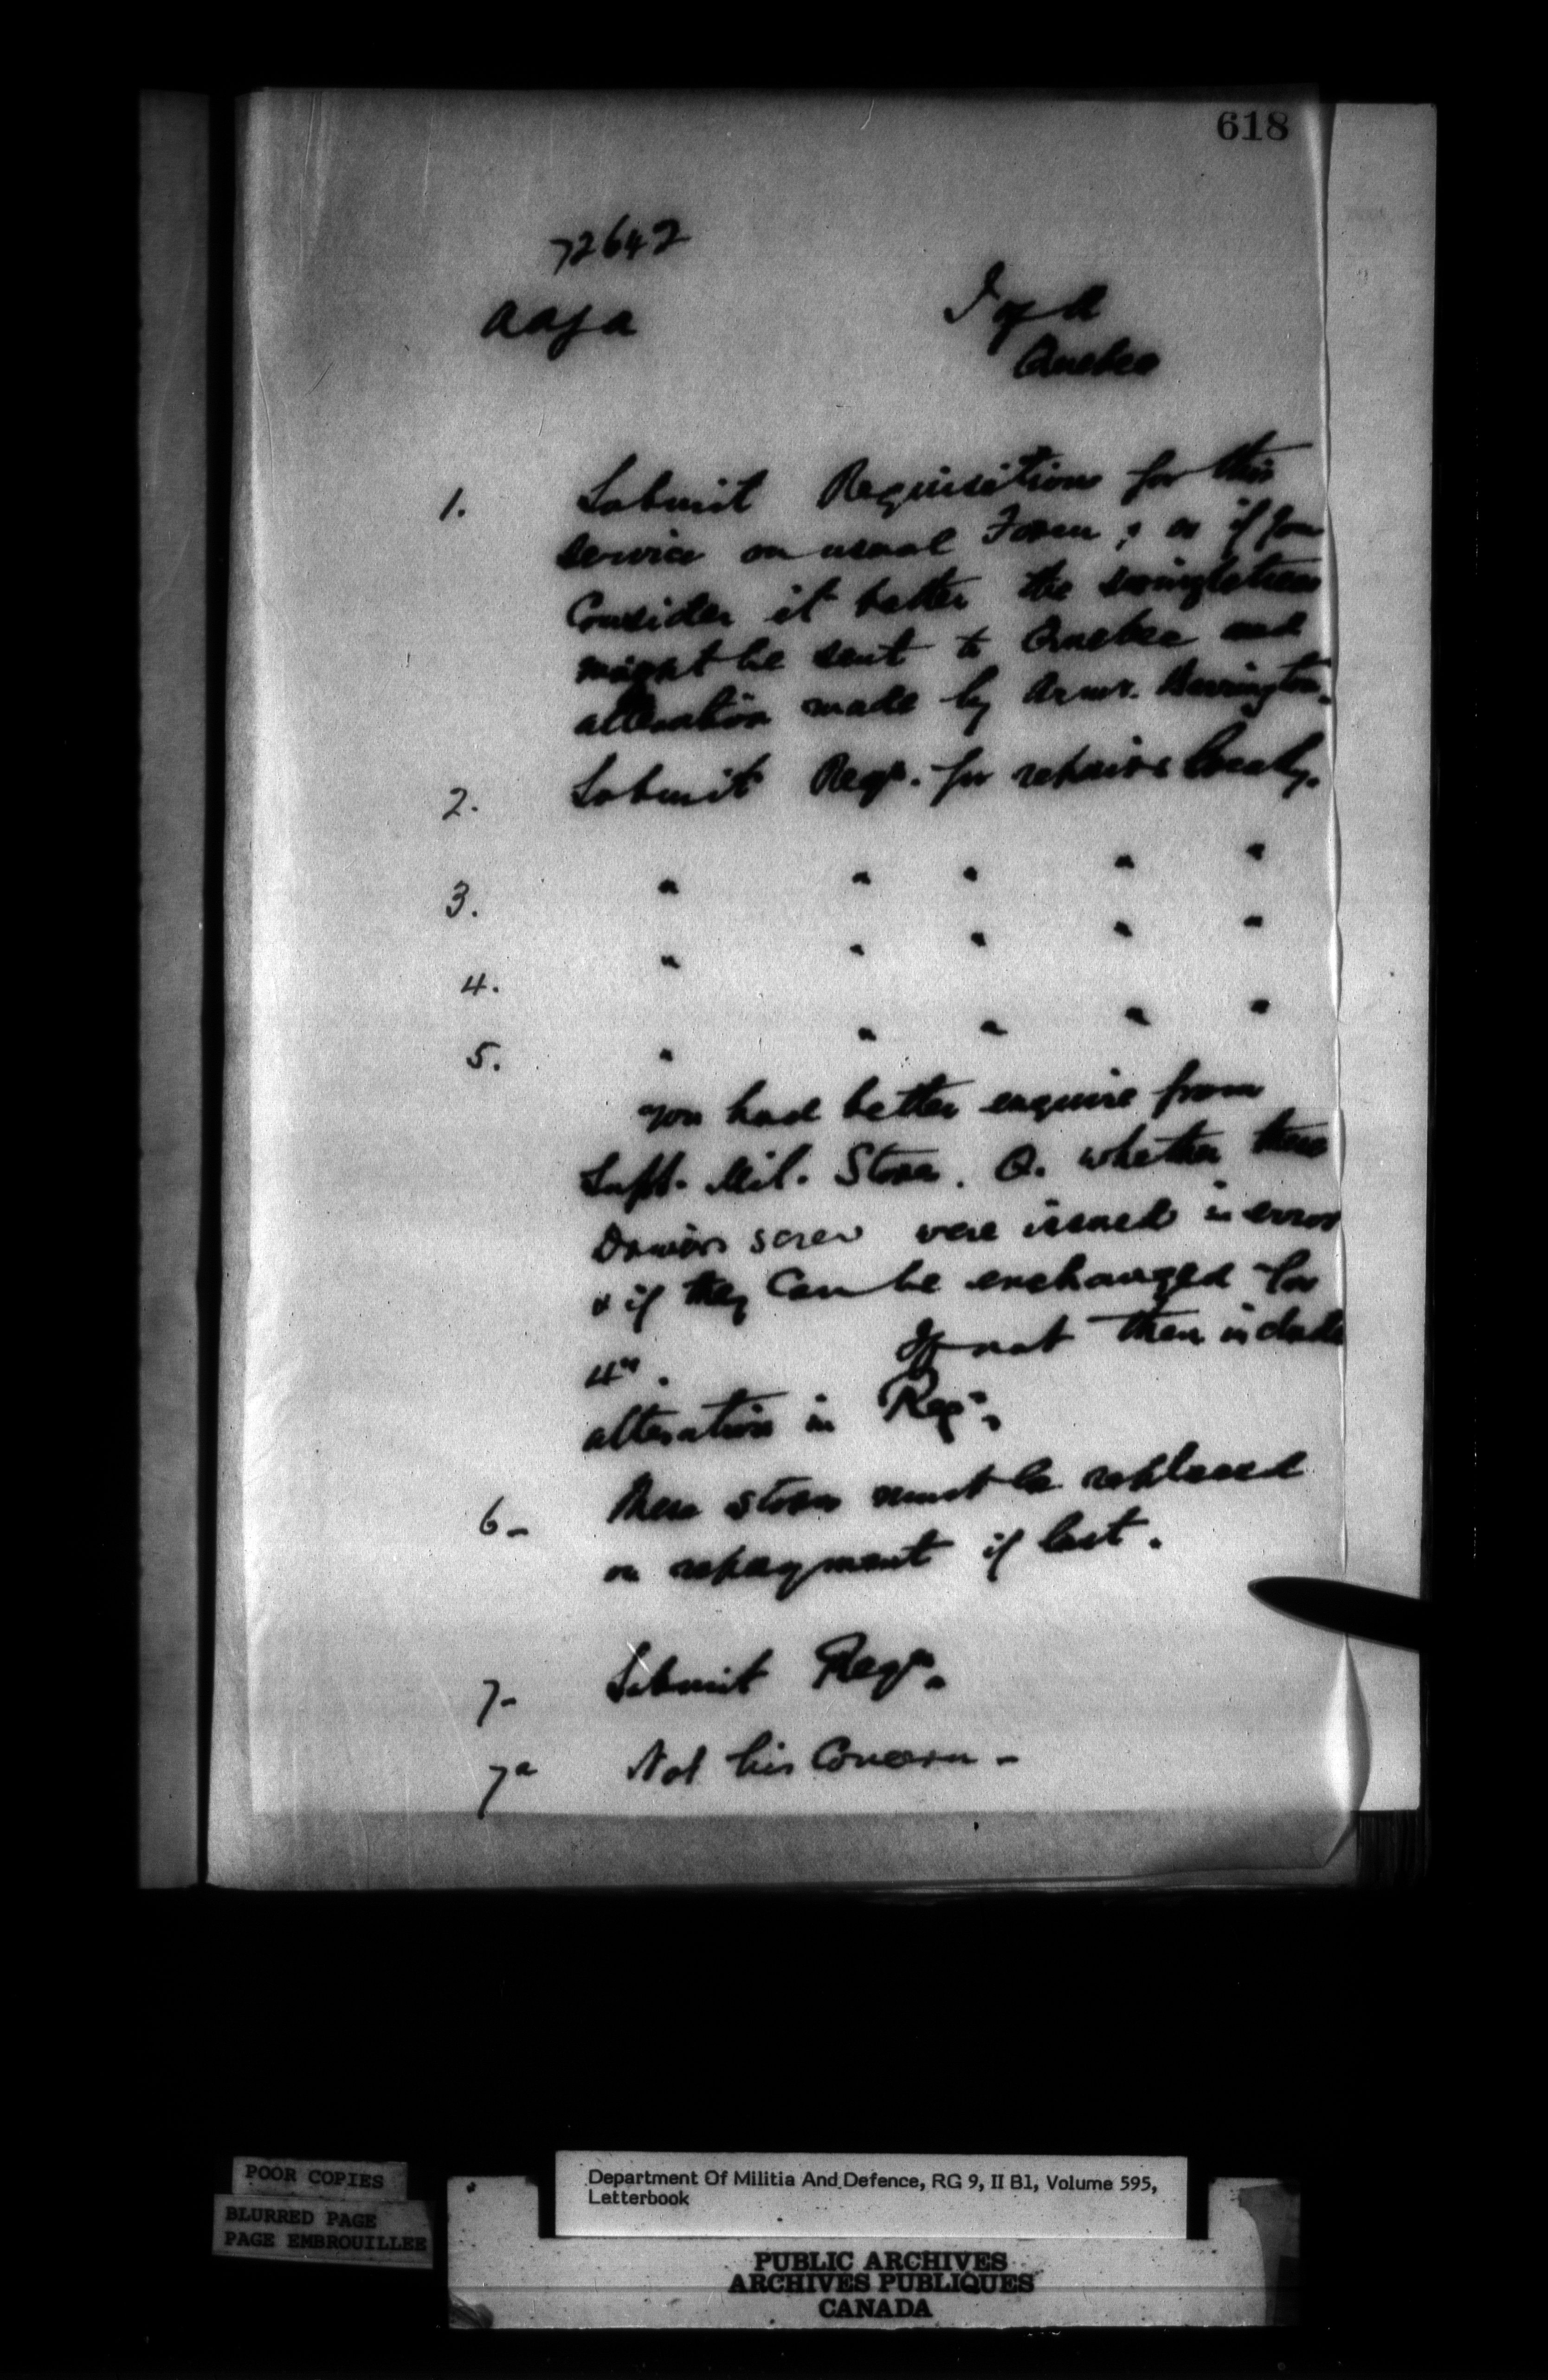 618
72642
AAGA
I of A
Quebec
1. Submit Requisitions for this
service on usual Form; or if you
Consider it better the swingletrees
might be sent to Quebec and
alteration made by Armr. Barrington.
2. Submit Reqn. for repairs locally.
3. " " " " "
4. " " " " "
5. " " " " "
You had better enquire from
Supt. Mil. Stores. Q. whether these
Drivers screw were issued in error
& if they Can be exchanged for
4". If not then include
alteration in Reqn.
6- These stores must be replaced
on repayment if lost.
7- Submit Reqn.
7a Not his Concern -
POOR COPIES
BLURRED PAGE
PAGE EMBROUILLEE
Department Of Militia And Defence, RG 9, II B1, Volume 595,
Letterbook
PUBLIC ARCHIVES
ARCHIVES PUBLIQUES
CANADA